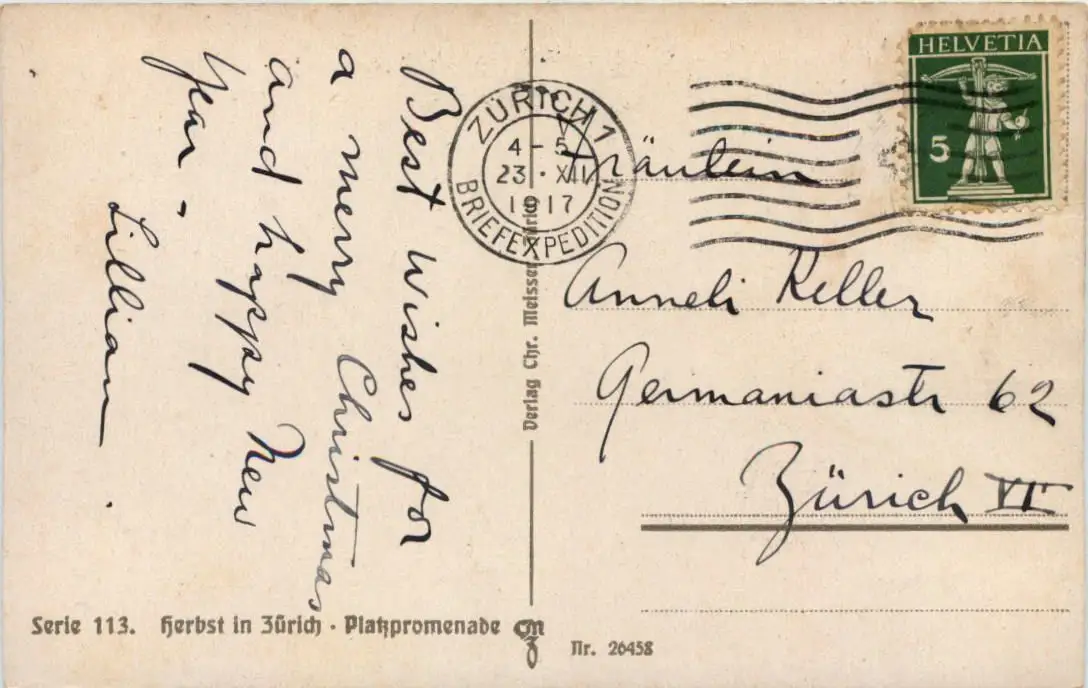 Best wishes for
a merry Christmas
and happy New
Year.
Lillian
HELVETIA
5
ZÜRICH 1
4-5
23.XII
1917
BRIEFEXPEDITION
Fräulein
Anneli Keller
Germaniastr 62
Zürich VI
Verlag Chr. Meisser
Serie 113. Herbst in Zürich · Platzpromenade CMZ
Nr. 26458